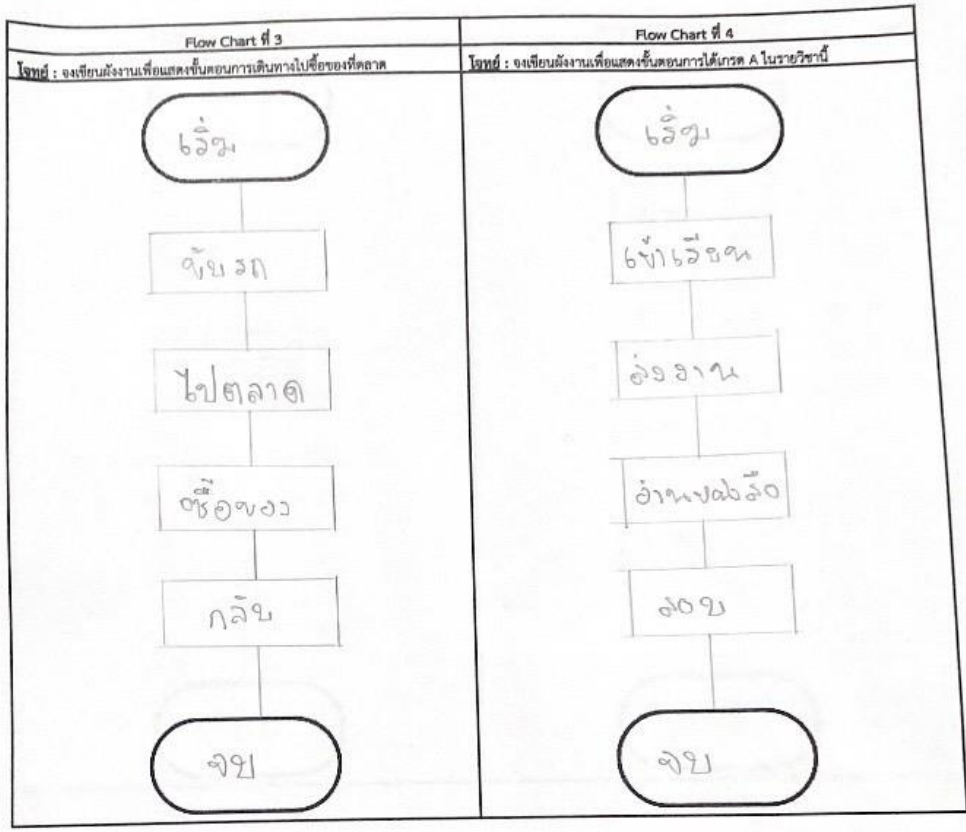 Flow Chart ที่ 3
โจทย์ : จงเขียนผังงานเพื่อแสดงขั้นตอนการเดินทางไปซื้อของที่ตลาด
เริ่ม
ขับรถ
ไปตลาด
ซื้อของ
กลับ
จบ
Flow Chart ที่ 4
โจทย์ : จงเขียนผังงานเพื่อแสดงขั้นตอนการได้เกรด A ในรายวิชานี้
เริ่ม
เข้าเรียน
ส่งงาน
อ่านหนังสือ
สอบ
จบ